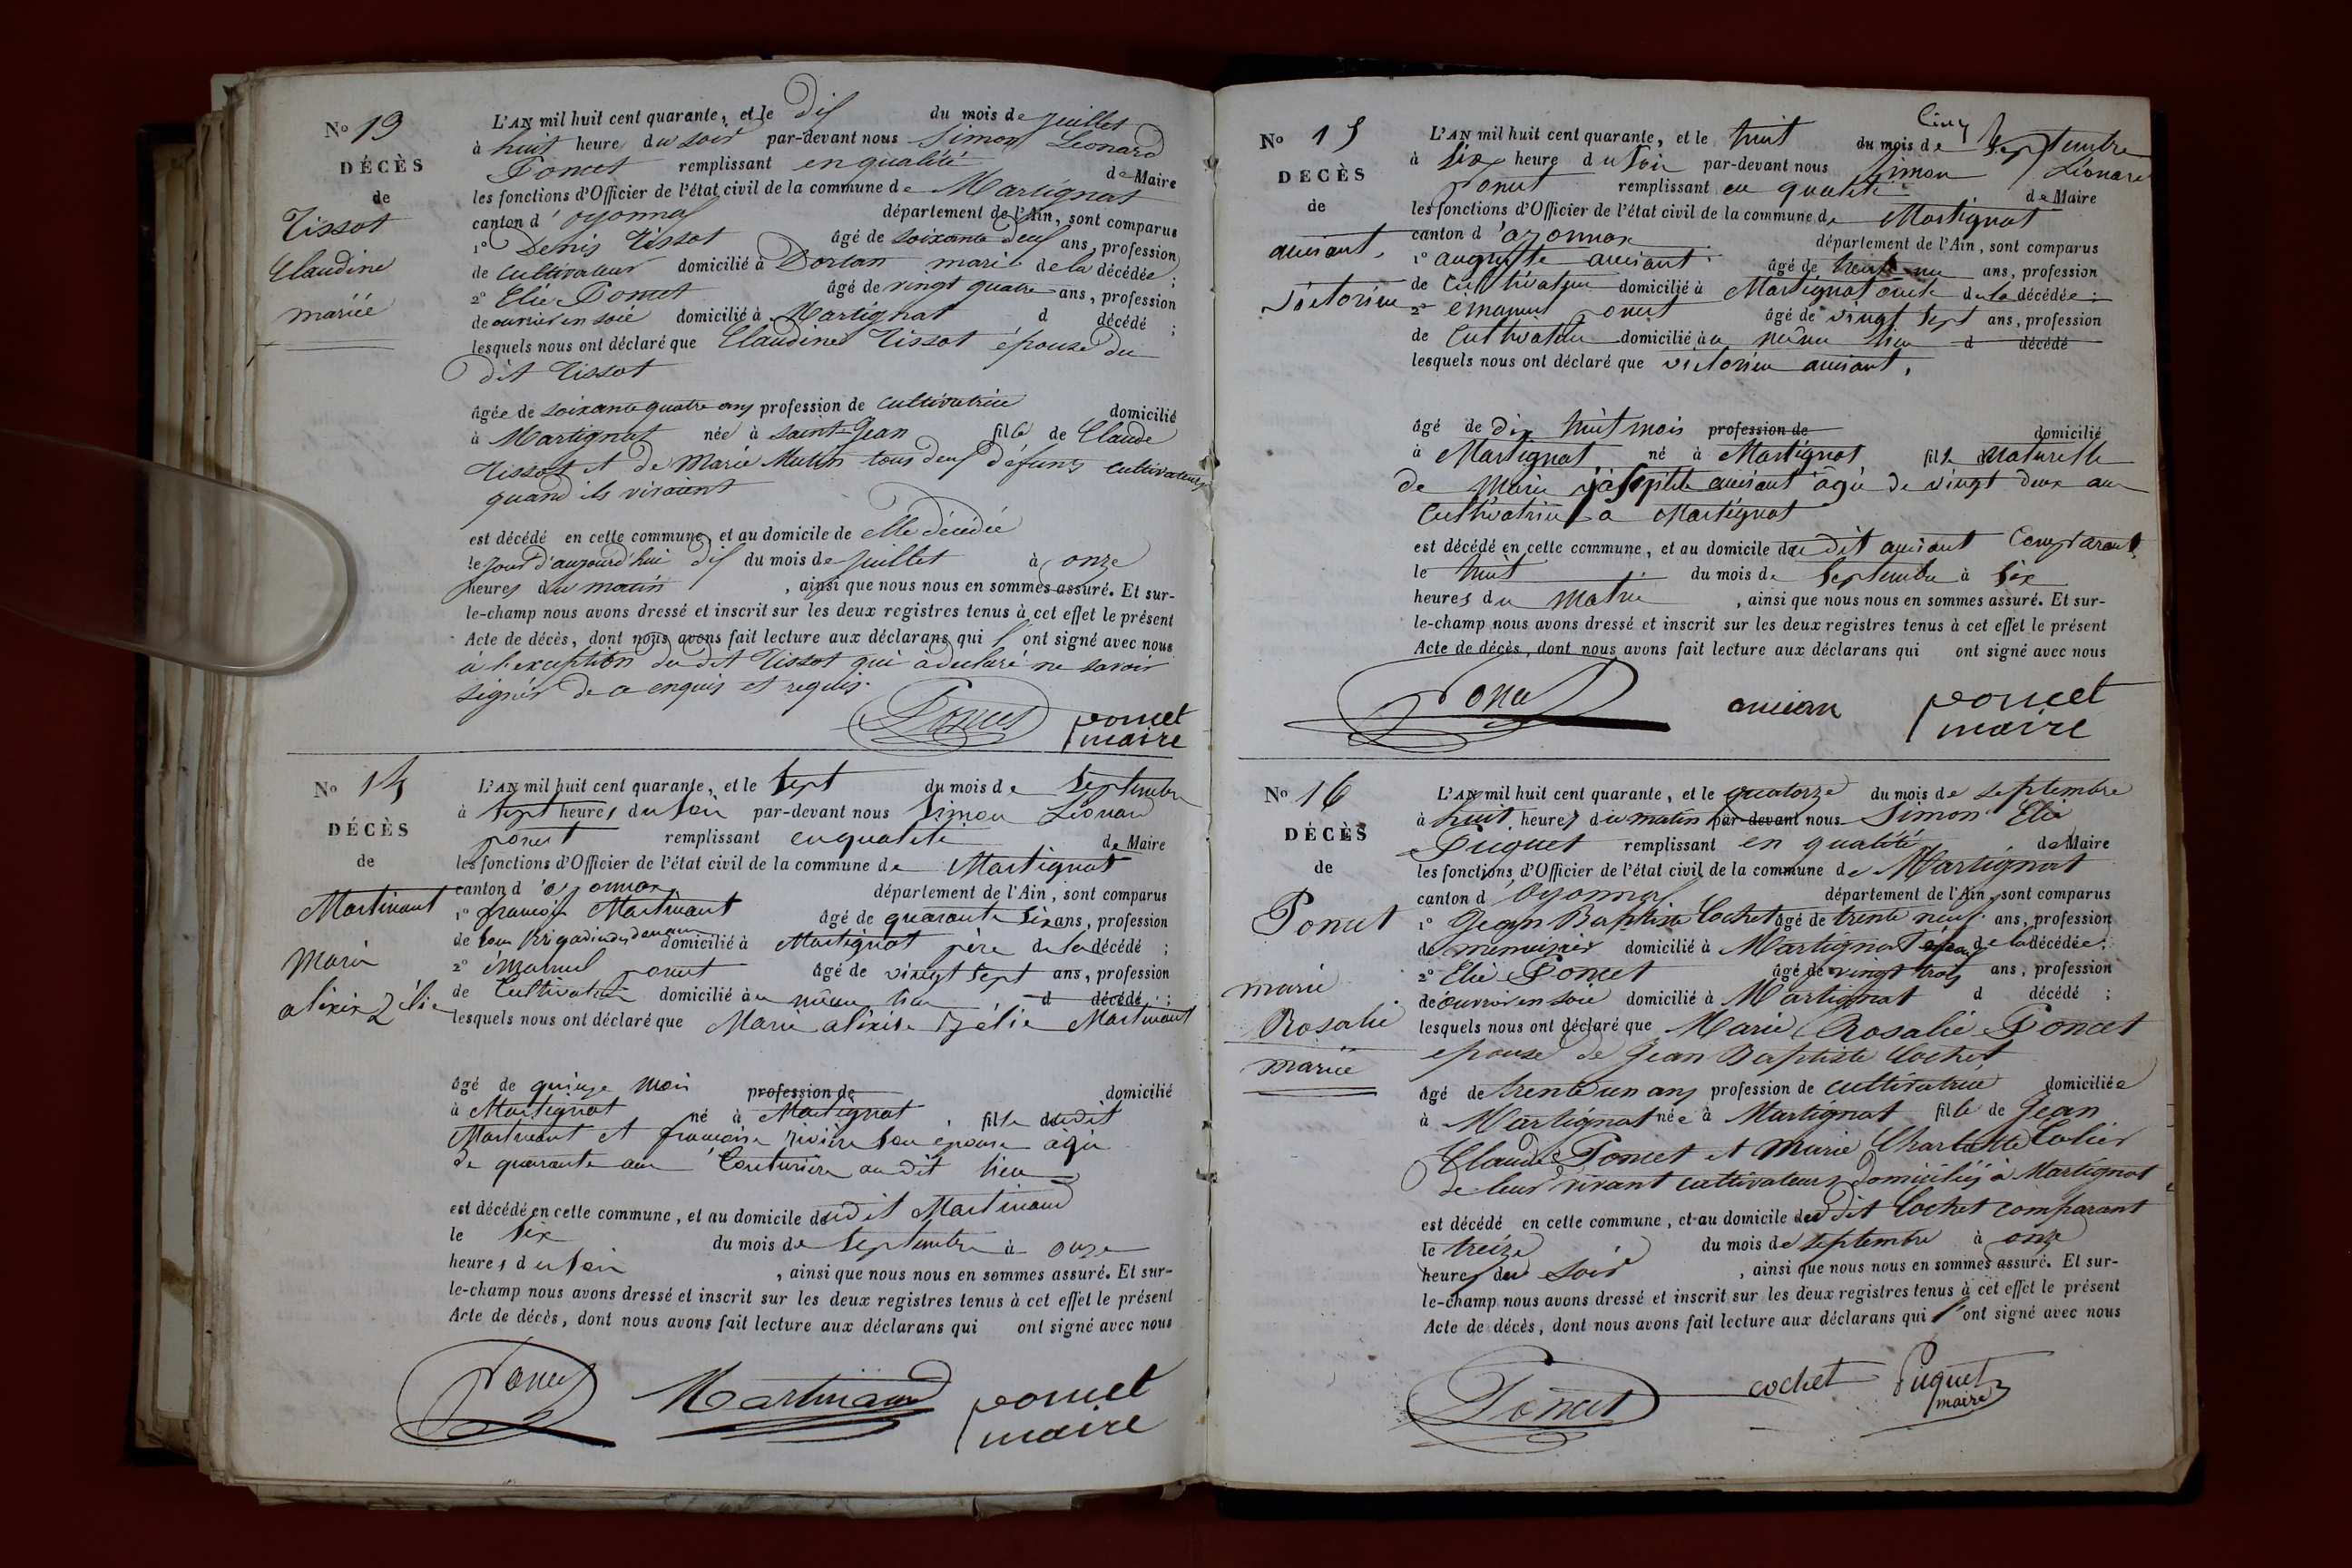 No 13
DÉCÈS
de
Tissot
Claudine
mariée
L'AN mil huit cent quarante, et le dix du mois de juillet
à huit heures du soir par-devant nous Simon Léonard
Poncet remplissant en qualité de Maire
les fonctions d'Officier de l'état civil de la commune de Martignat
canton d'oyonnax département de l'Ain, sont comparus
1° Denis Tissot âgé de soixante deux ans, profession
de cultivateur domicilié à Dortan mari de la décédée ;
2° Elie Poncet âgé de vingt quatre ans, profession
de ouvrier en soie domicilié à Martignat d décédé ;
lesquels nous ont déclaré que Claudine Tissot épouse du
dit Tissot
âgée de soixante quatre ans profession de cultivatrice domicilié
à Martignat née à Saint-Jean fille de Claude
Tissot et de Marie tous deux défunts cultivateurs
quand ils vivaient
est décédé en cette commune, et au domicile de elle décédée
le jour d'aujourd'hui dix du mois de juillet à onze
heures du matin , ainsi que nous nous en sommes assuré. Et sur-
le-champ nous avons dressé et inscrit sur les deux registres tenus à cet effet le présent
Acte de décès, dont nous avons fait lecture aux déclarans qui l'ont signé avec nous
à l'exception du dit Tissot qui a déclaré ne savoir
signer de ce enquis et requis.
Poncet poncet
maire
No 14
DÉCÈS
de
Martinant
Marie
alixie Zélie
L'AN mil huit cent quarante, et le sept du mois de septembre
à sept heures du soir par-devant nous Simon Léonard
poncet remplissant en qualité de Maire
les fonctions d'Officier de l'état civil de la commune de Martignat
canton d'oyonnax département de l'Ain, sont comparus
1° françois Martinant âgé de quarante six ans, profession
de sous brigadier des douanes domicilié à Martignat père de la décédé ;
2° émanuel poncet âgé de vingt sept ans, profession
de Cultivateur domicilié au même lieu d décédé ;
lesquels nous ont déclaré que Marie alixie Zélie Martinant
âgé de quinze mois profession de domicilié
à Martignat né à Martignat fille du dit
Martinant et françoise rivière son épouse agée
de quarante ans Couturière au dit lieu
est décédé en cette commune, et au domicile du dit Martinand
le six du mois de septembre à onze
heures du soir , ainsi que nous nous en sommes assuré. Et sur-
le-champ nous avons dressé et inscrit sur les deux registres tenus à cet effet le présent
Acte de décès, dont nous avons fait lecture aux déclarans qui ont signé avec nous
Poncet Martinand poncet
maire
No 15
DÉCÈS
de
Victorine
L'AN mil huit cent quarante, et le huit du mois de septembre
à six heure du soir par-devant nous Simon Léonard
poncet remplissant en qualité de Maire
les fonctions d'Officier de l'état civil de la commune de Martignat
canton d'oyonnax département de l'Ain, sont comparus
1° auguste âgé de trente un ans, profession
de Cultivateur domicilié à Martignat oncle de la décédée ;
2° émanuel poncet âgé de vingt sept ans, profession
de Cultivateur domicilié au même lieu d décédé
lesquels nous ont déclaré que victorine
âgé de dix huit mois profession de domicilié
à Martignat né à Martignat fille naturelle
de Marie agée de vingt deux ans
Cultivatrice a Martignat
est décédé en cette commune, et au domicile du dit Comparant
le huit du mois de septembre à six
heures du matin , ainsi que nous nous en sommes assuré. Et sur-
le-champ nous avons dressé et inscrit sur les deux registres tenus à cet effet le présent
Acte de décès, dont nous avons fait lecture aux déclarans qui ont signé avec nous
Poncet poncet
maire
No 16
DÉCÈS
de
Poncet
marie
Rosalie
mariée
L'AN mil huit cent quarante, et le quatorze du mois de septembre
à huit heures du matin par-devant nous Simon Elie
Puquet remplissant en qualité de Maire
les fonctions d'Officier de l'état civil de la commune de Martignat
canton d'Oyonnax département de l'Ain, sont comparus
1° Jean Baptiste Cochet âgé de trente neuf ans, profession
de menuisier domicilié à Martignat époux de la décédée ;
2° Elie Poncet âgé de vingt trois ans, profession
de ouvrier en soie domicilié à Martignat d décédé ;
lesquels nous ont déclaré que Marie Rosalie Poncet
epouse de Jean Baptiste Cochet
âgé de trente un ans profession de cultivatrice domiciliée
à Martignat née à Martignat fille de Jean
Claude Poncet et Marie Charlotte
de leur vivant cultivateurs domiciliés à Martignat
est décédé en cette commune, et au domicile du dit Cochet comparant
le treize du mois de septembre à onze
heures du soir , ainsi que nous nous en sommes assuré. Et sur-
le-champ nous avons dressé et inscrit sur les deux registres tenus à cet effet le présent
Acte de décès, dont nous avons fait lecture aux déclarans qui l'ont signé avec nous
Poncet cochet Puquet
maire